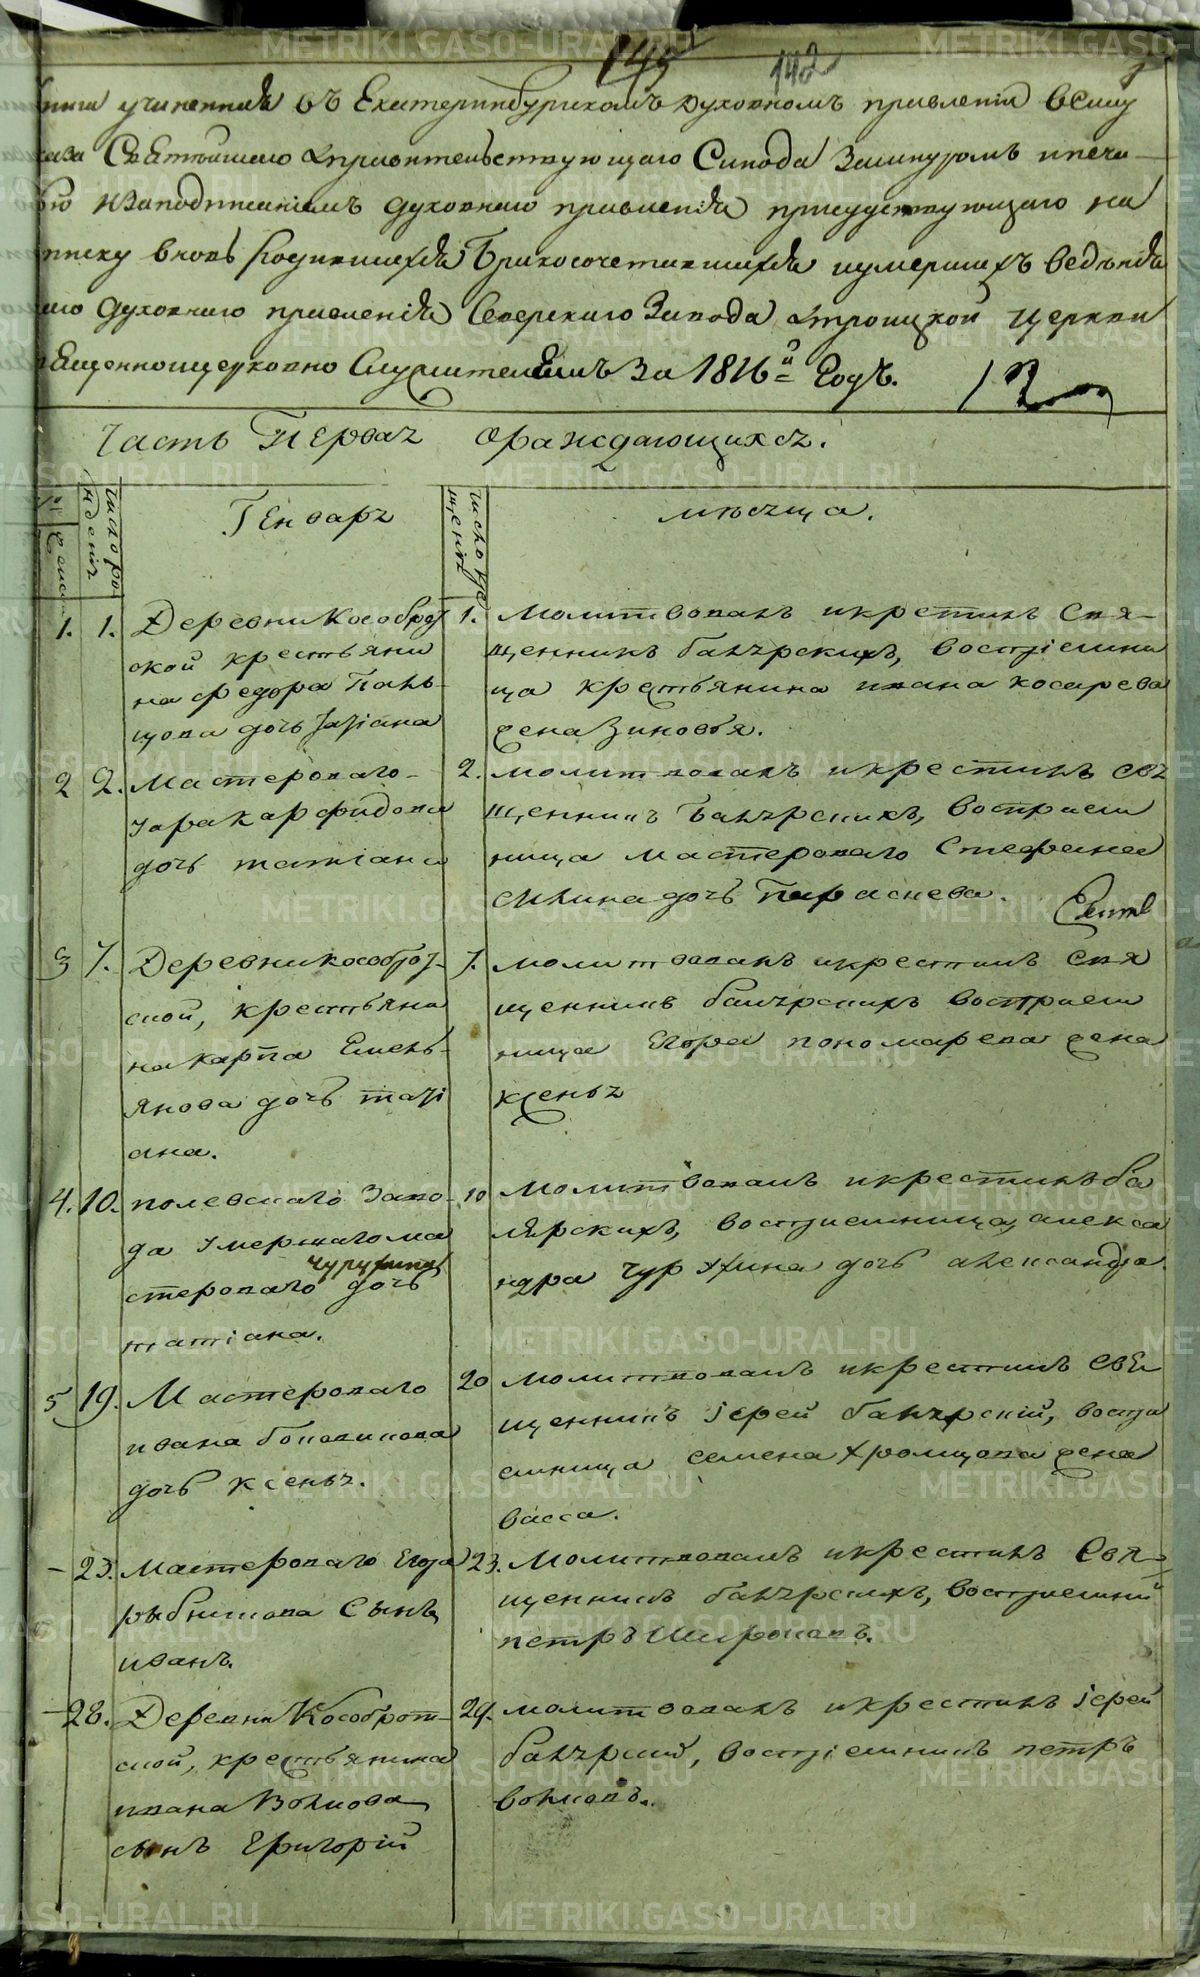 145
142
учиненная въ Екатеринбургскомъ духовномъ правленіи всилу
Святѣйшаго правительствующаго Синода зашнуромъ ипеча-
изаподписаніемъ духовнаго правленія присудствующаго на
вновь Родившихся Бракосочетавшихся иумершихъ Ведѣнія
духовнаго правленія Северскаго Завода троицкой церкви
За 1816й Годъ.
Часть Первая ораждающихся.
Генваря
мѣсяца.
1. 1. Деревни Кособрод
ской крестьяни
на федора Пань
щова дочь Татіана
1. Молитвовалъ икрестилъ Свя-
щенникъ балярскихъ, воспріемни
ца крестьянина ивана косарева
жена Зиновья.
2 2. Мастероваго
дочь татіана
2. молитвовалъ икрестилъ свя
щенникъ Балярскихъ, восприем
ница мастероваго Стефана
дочь Параскева.
3 7. Деревни кособрод-
ской, крестьяни
на карпа Емель-
янова дочь таті
ана.
7. молитвовалъ икрестилъ Свя
щенникъ балярскихъ восприем
ница Егора пономарева жена
ксенья
4. 10. полевскаго заво-
да умершаго ма
стероваго дочь
татіана.
10 Молитвовалъ икрестилъ ба
лярскихъ, воспріемница алекса
ндра дочь александра.
5 19. Мастероваго
ивана
дочь ксенья.
20 молитвовалъ икрестилъ све
щенникъ іерей балярскій, воспри
емница семена хромцова жена
васса.
- 23. мастероваго Егора
рыбникова Сынъ
иванъ.
23. Молитвовалъ икрестилъ Свя-
щенникъ балярскихъ, воспріемникъ
петръ Широковъ.
- 28. Деревни Кособрот-
ской, крестьянина
ивана Волкова
сынъ Григорій
29. молитвовалъ икрестилъ іерей
балярскій, воспріемникъ петръ
волковъ.
METRIKI.GASO-URAL.RU